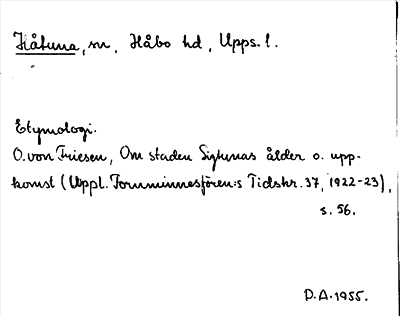 Håtuna, sn, Håbo hd, Upps. l.
Etymologi.
O. von Friesen, Om staden Sigtunas ålder o. upp-
komst (Uppl. Fornminnesfören:s Tidskr. 37, 1922-23),
s. 56.
D.A. 1955.